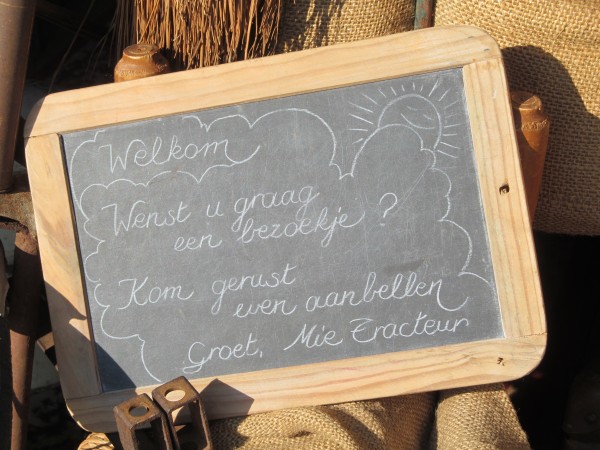 Welkom
Wenst u graag
een bezoekje ?
Kom gerust
even aanbellen
Groet, Mie Tracteur